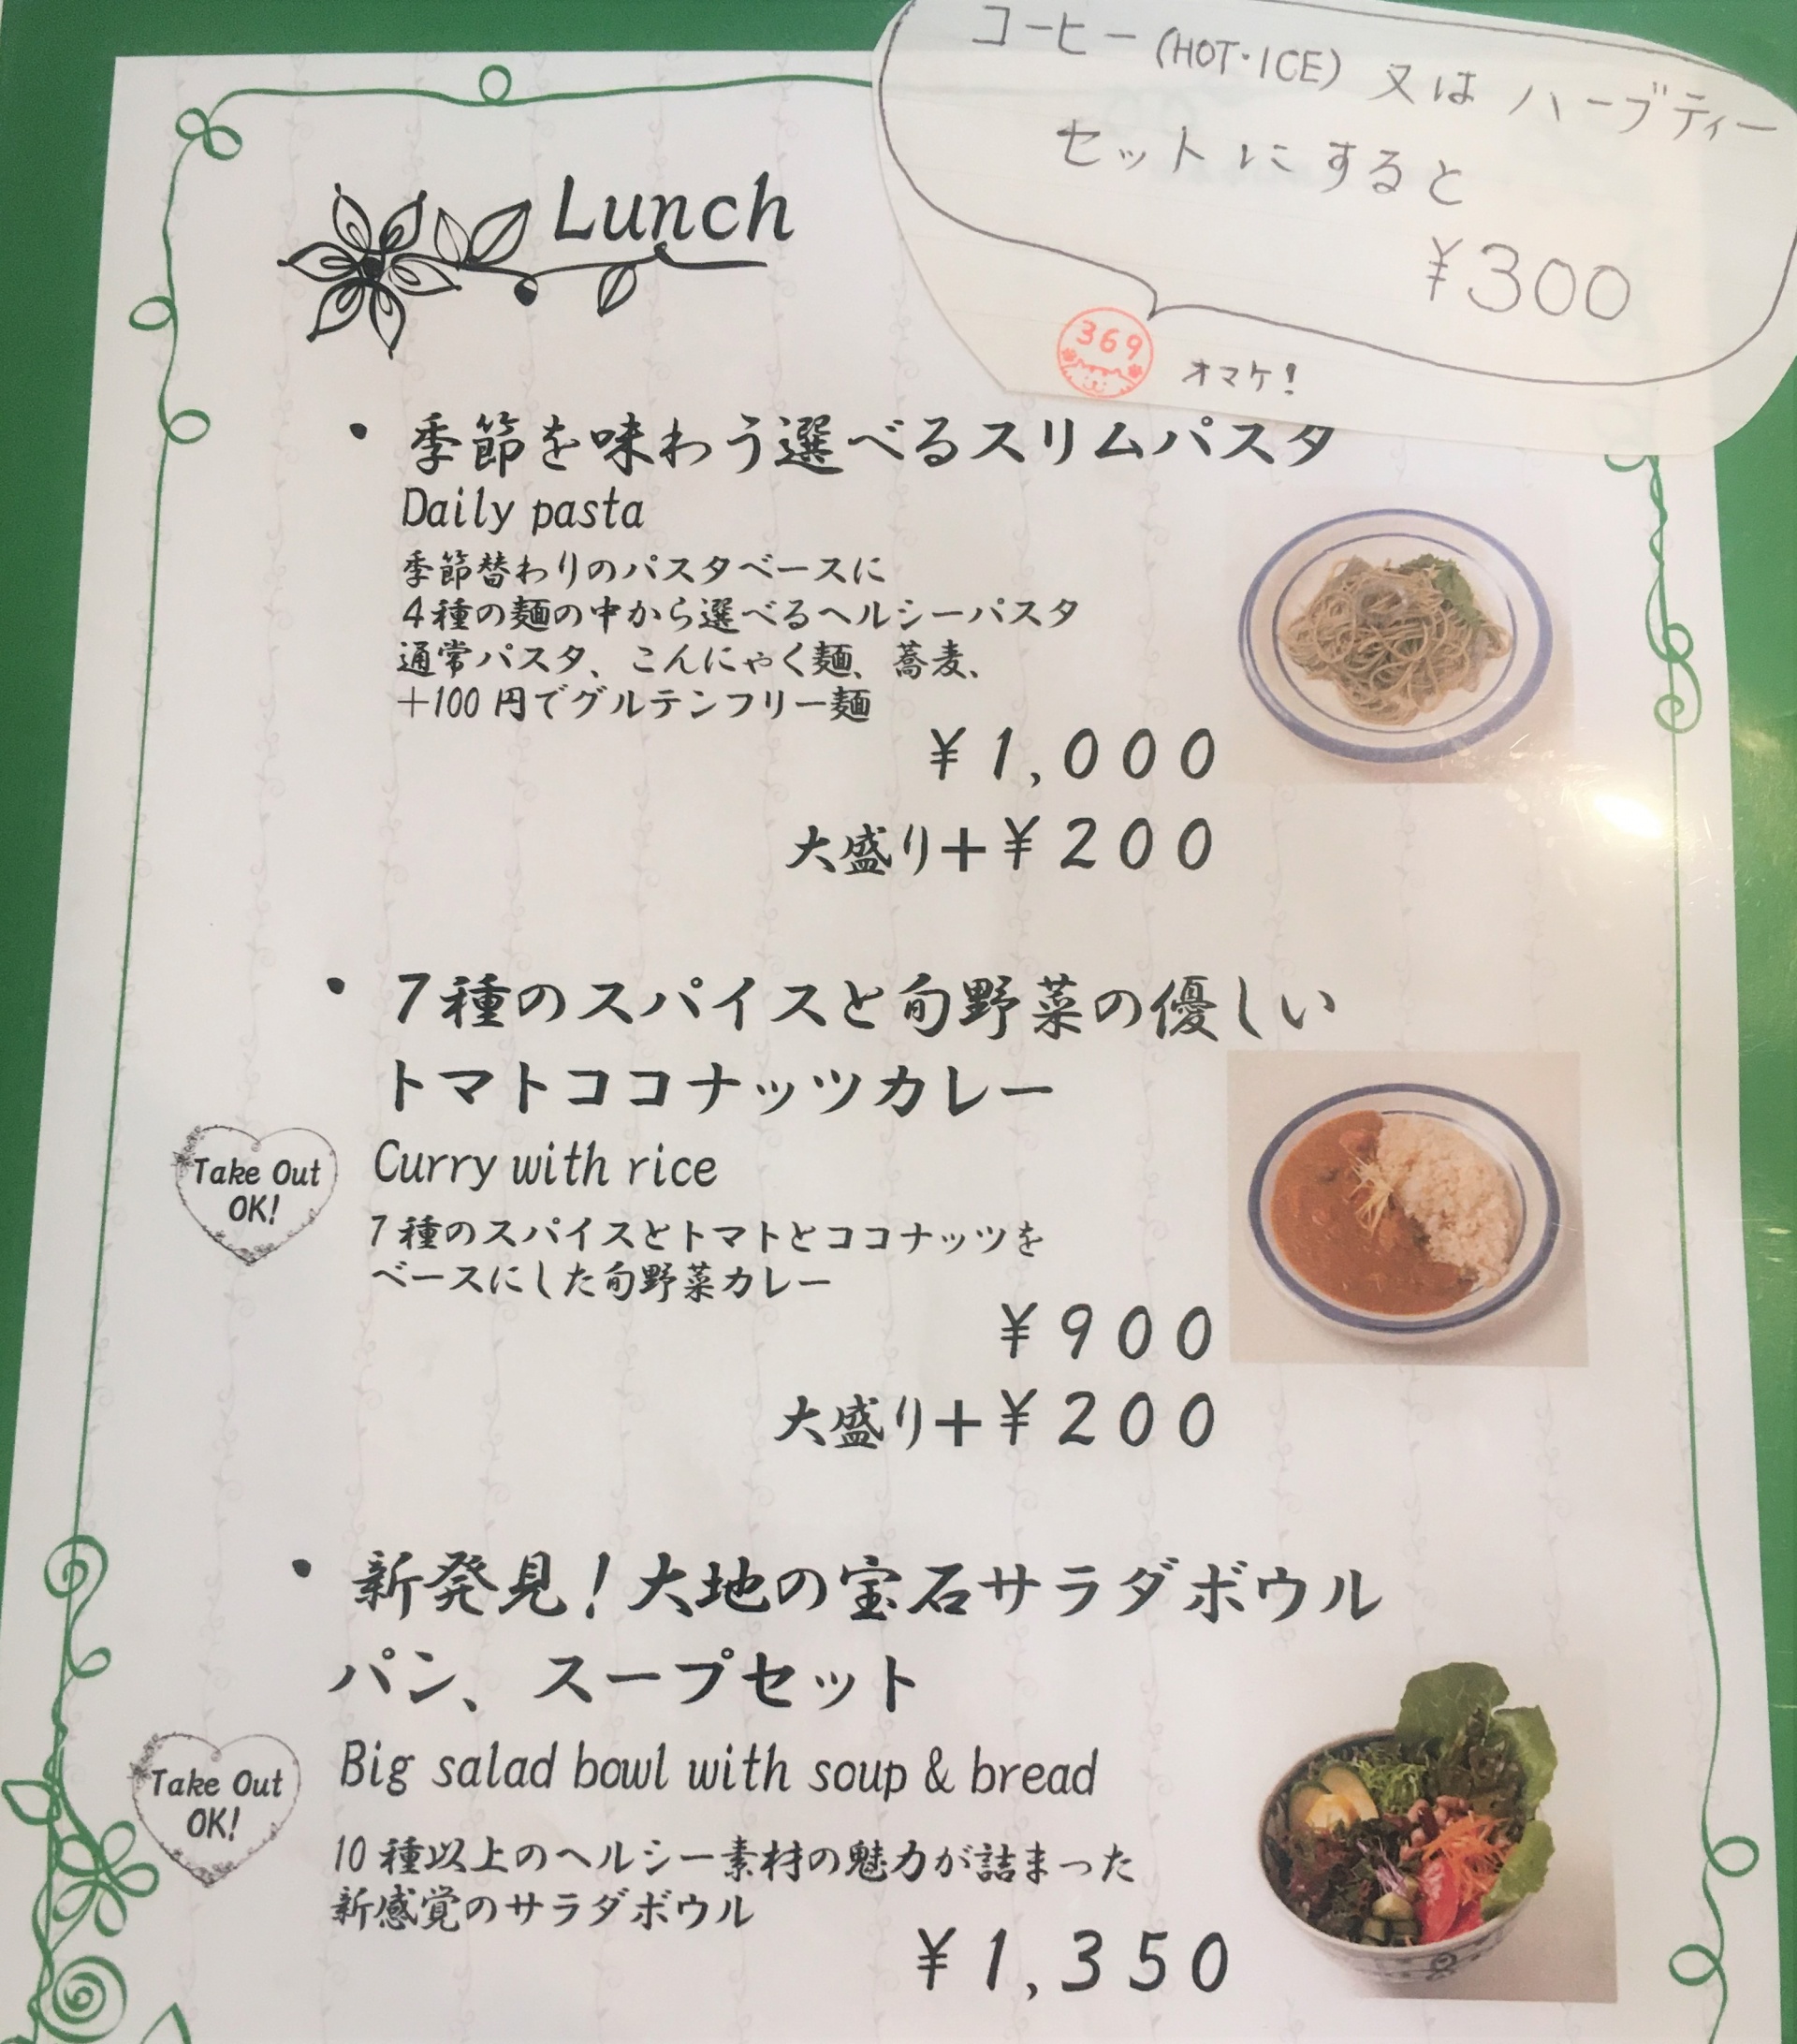 コーヒー(HOT・ICE) 又は ハーブティー
セットにすると
¥300
369
オマケ!
Lunch
・季節を味わう選べるスリムパスタ
Daily pasta
季節替わりのパスタベースに
4種の麺の中から選べるヘルシーパスタ
通常パスタ、こんにゃく麺、蕎麦、
+100 円でグルテンフリー麺
¥1,000
大盛り+¥200
・7種のスパイスと旬野菜の優しい
トマトココナッツカレー
Take Out
OK!
Curry with rice
7種のスパイスとトマトとココナッツを
ベースにした旬野菜カレー
¥900
大盛り+¥200
・新発見!大地の宝石サラダボウル
パン、スープセット
Take Out
OK!
Big salad bowl with soup & bread
10種以上のヘルシー素材の魅力が詰まった
新感覚のサラダボウル
¥1,350